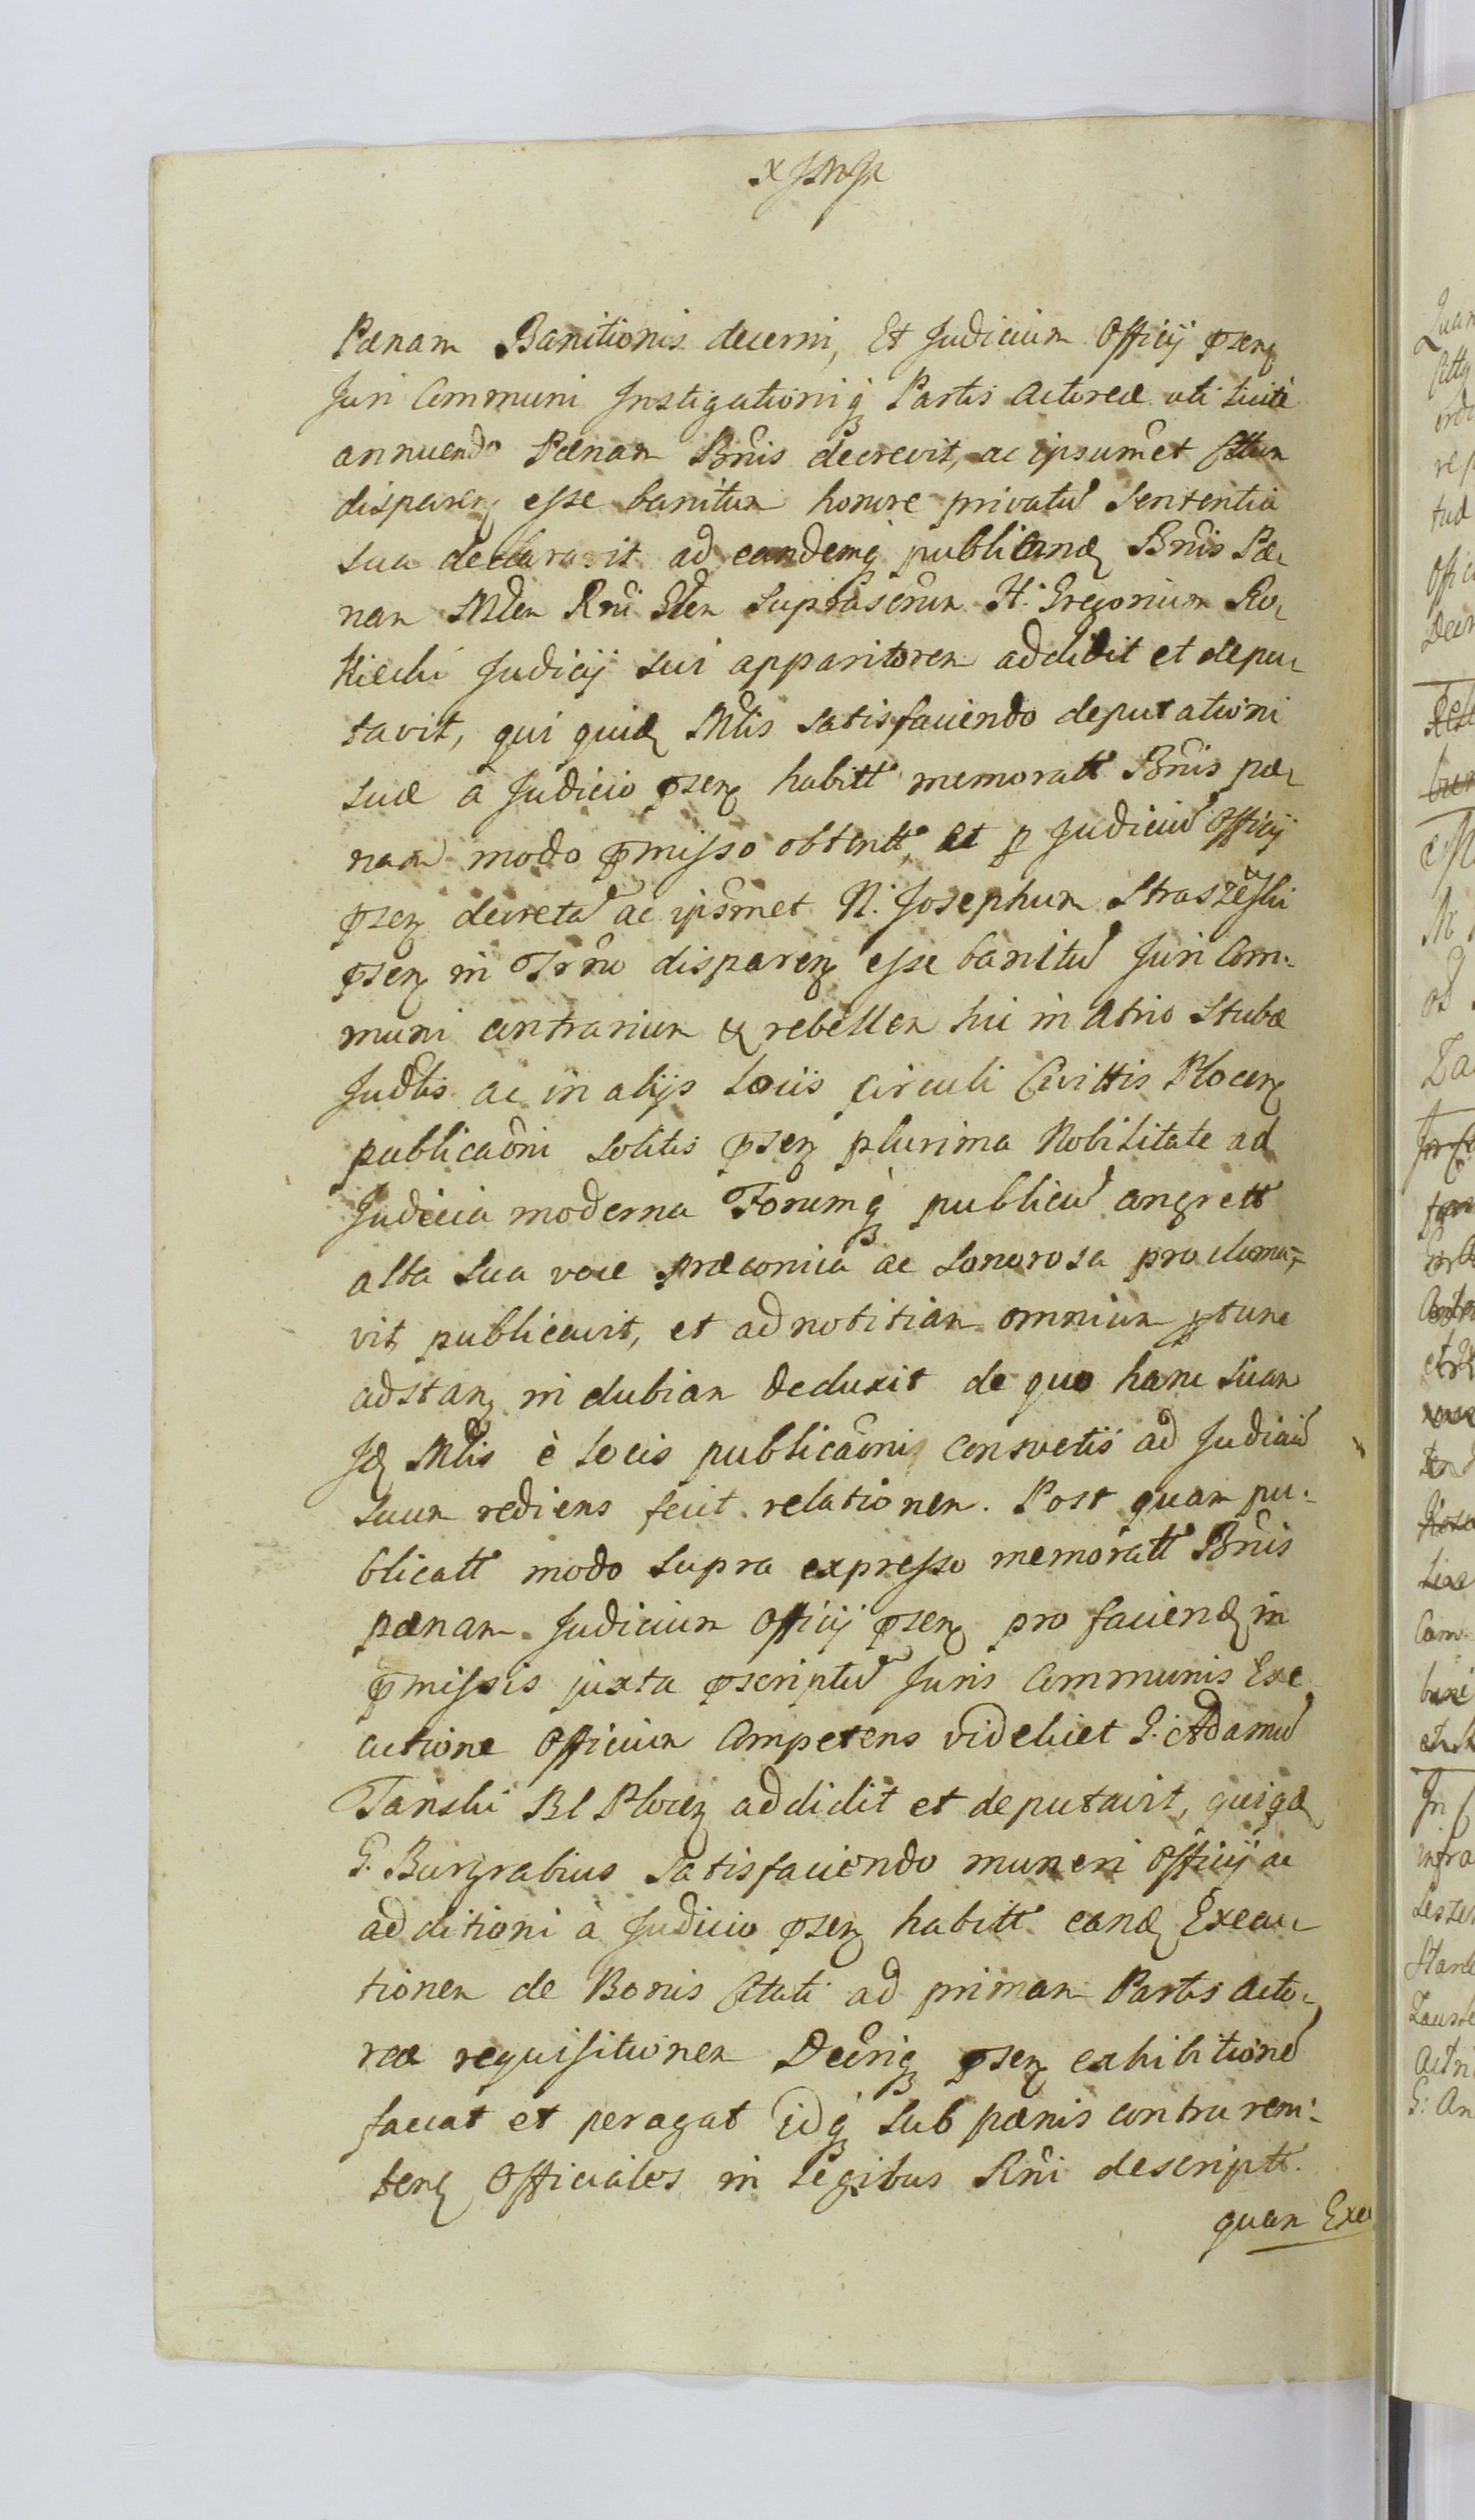 Pœnam Banitionis decerni, Et Judicium Officij psenz
Juri Communi Instigationiq3 Partis Actoreæ uti licitè
annuendo Pœnam Bnis decrevit, ac ipsummet Cttum
disparenz esse banitum honore privatū Sententia
sua declaravit ad eandemq3 publicandz Bnis Pœ-
nam Mlem Rni Glem suprascrum H. Gregorium Ro-
kicki Judicij sui apparitorem addidit et depu-
tavit, qui quidz Mlis satisfaciendo deputationi
suæ à Judicio psenz habitt memoratt Bnis pæ-
nam modo pmisso obtentt, et p Judiciū Officij
psenz decretā ac ipsmet N. Josephum Straszewski
psenz in Trno disparenz esse banitū Juri Com-
muni contrarium & rebellem hic in Atrio Stubæ
Judlis ac in alijs Locis circuli Civittis Plocenz
publicaoni solitis psenz plurima Nobilitate ad
Judicia moderna Forumq3 publicū congrett
alta sua voce præconica ac sonorosa proclama-
vit publicavit, et ad notitiam omnium ptunc
adstanz indubiam deduxit de quo hanc suam
Jdz Mlis è Locis publicaonis consvetis ad Judiciū
suum rediens fecit relationem. Post quam pu-
blicatt modo supra expresso memoratt Bnis
pœnam Judicium Officij psenz pro faciendz in
pmissis juxta pscriptū Juris Communis Exe
cutione Officium Competens videlicet G. Adamū
Tanski Bl Plocenz addidit et deputavit, quiqdz
G. Burgrabius satisfaciendo muneri Officij ac
additioni à Judicio psenz habitt eandz Execu-
tionem de Bonis Citati ad primam Partis Acto-
reæ requisitionem Decriq3 psenz exhibitionē
faciat et peragat idq3 sub pœnis contra reni-
tenz Officiales in Legibus Rni descriptt.
quam Exe